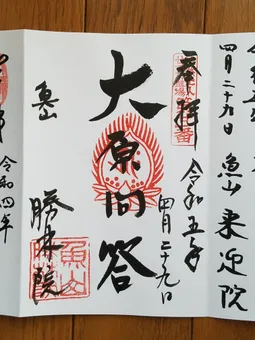 四月二十九日
魚山 来迎院
奉拝
令和五年
四月二十九日
大原問答
魚山
勝林院
魚山
令和四年